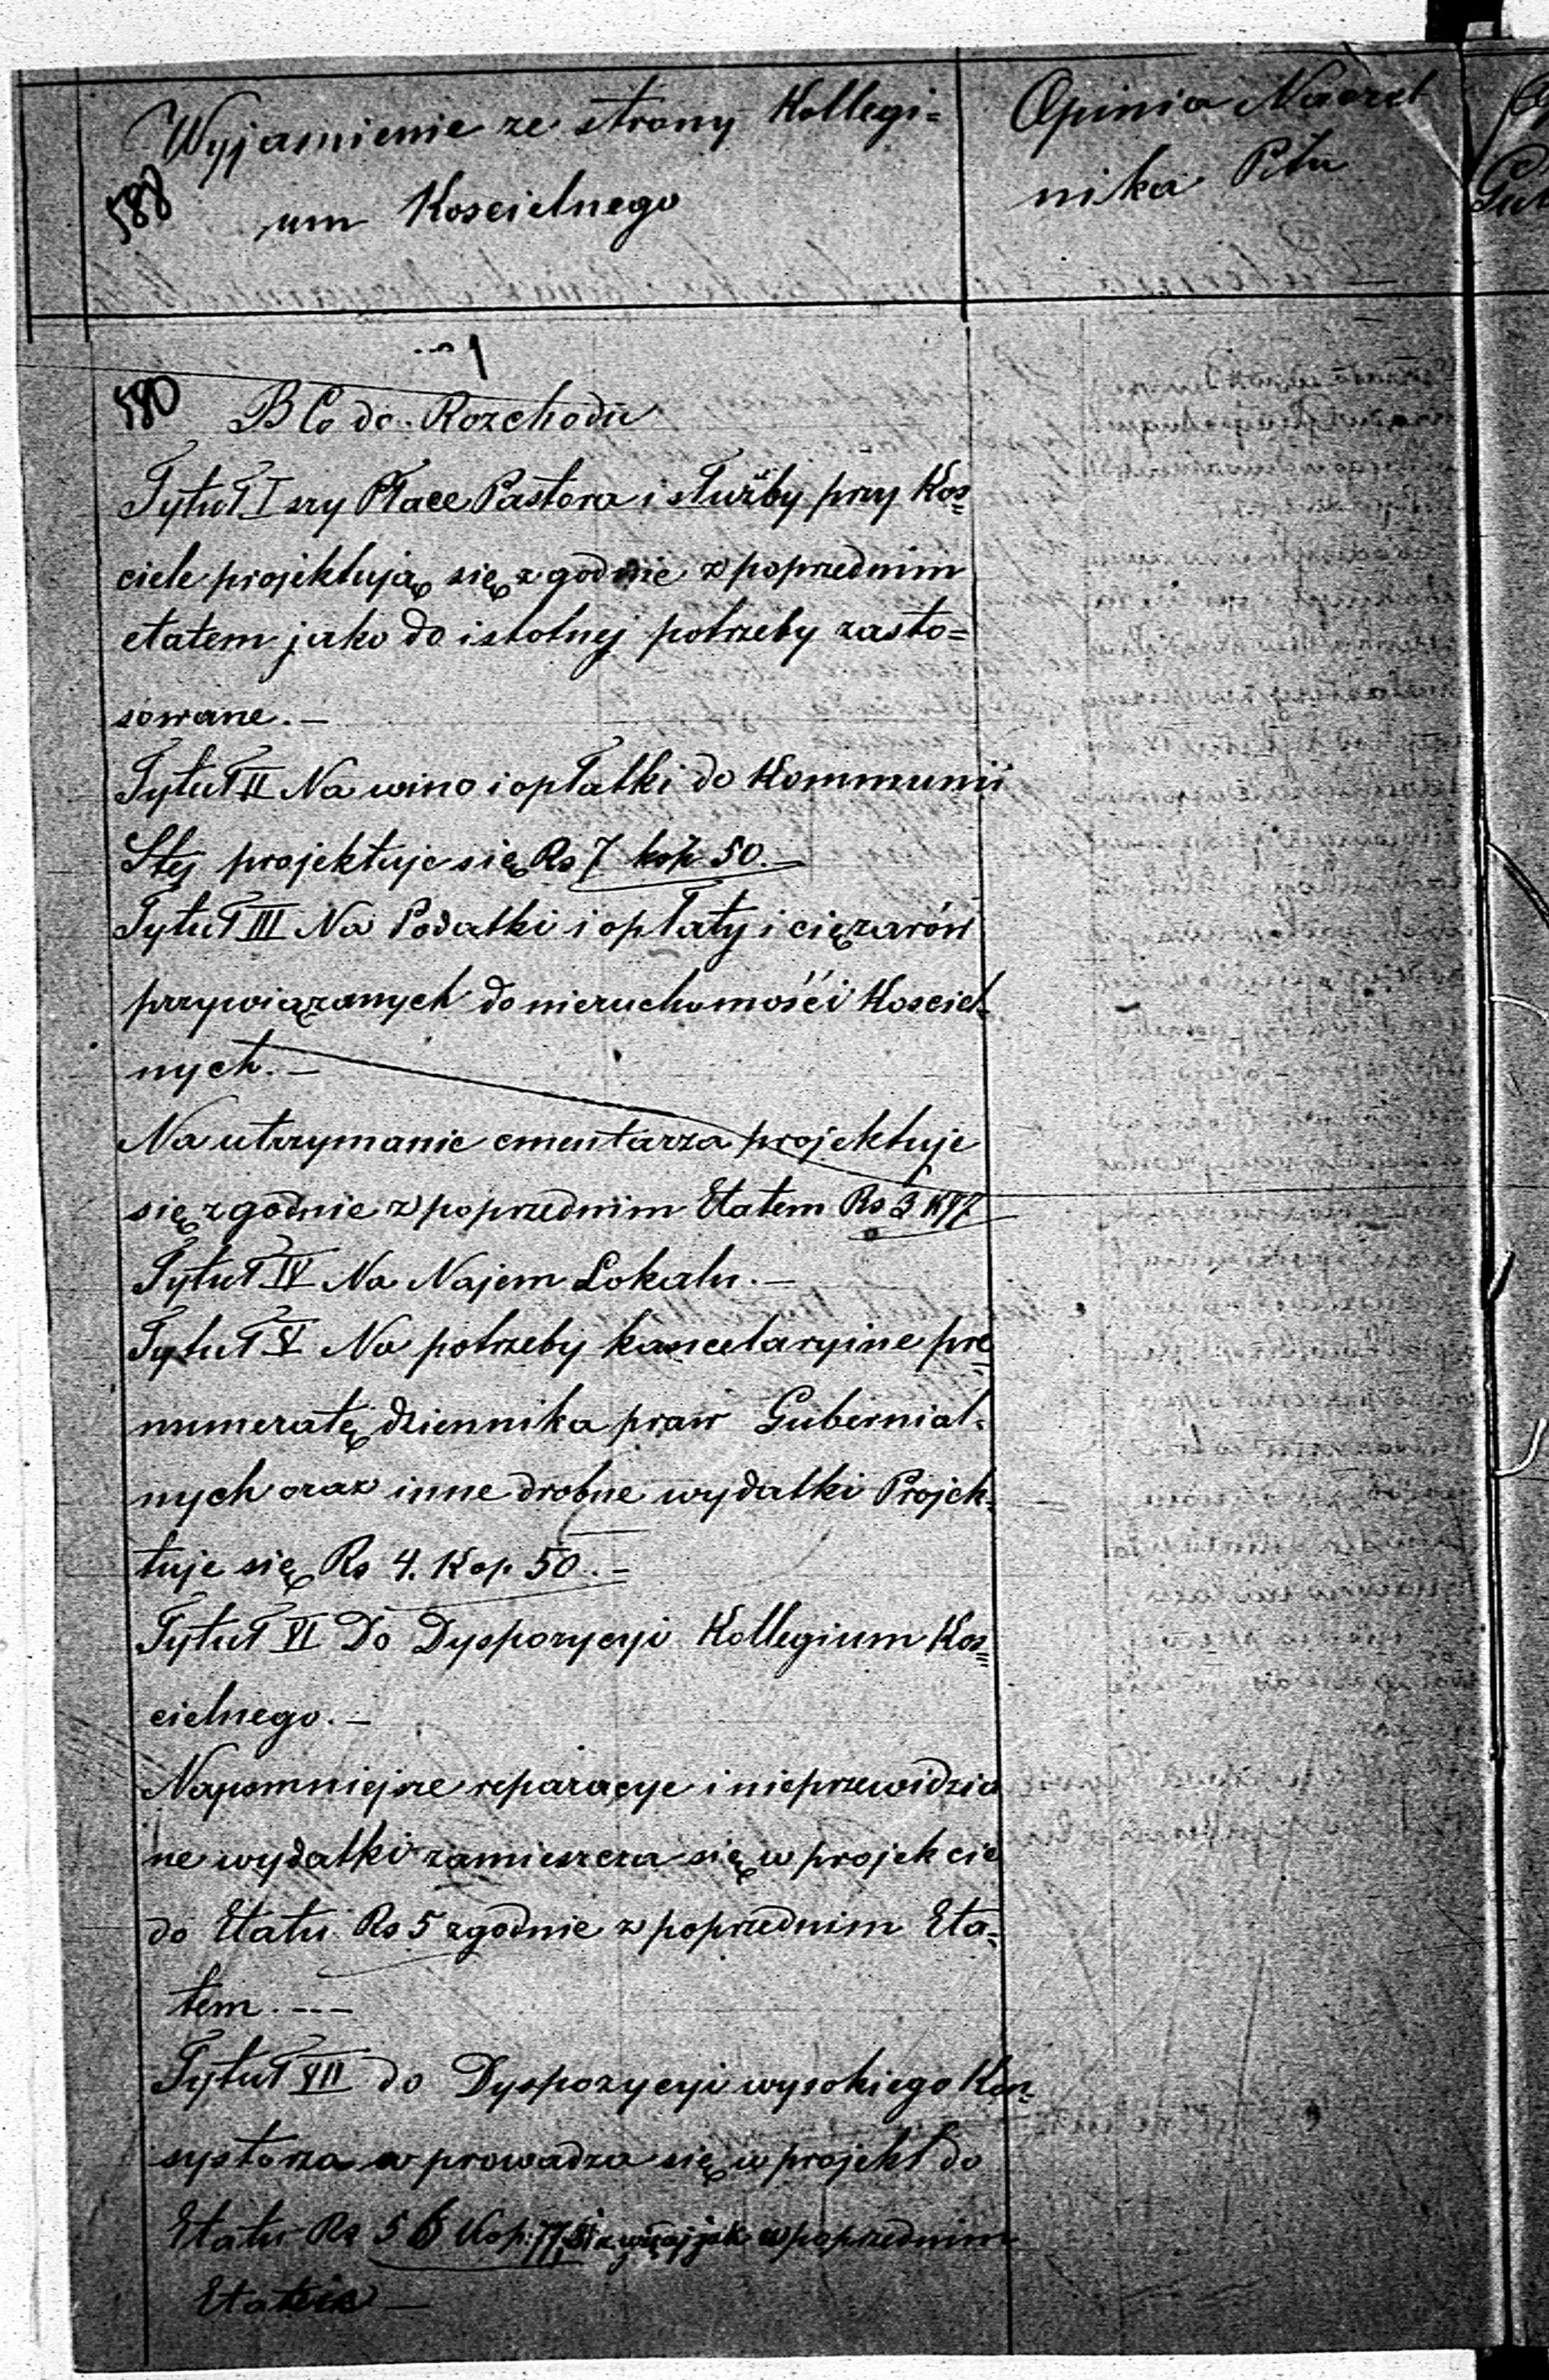 Wyjasnienie ze strony Kollegi=
um Koscielnego
Opinia Naczel
nika Ptu
588
580
B Co do Rozchodu
Tytuł I szy Płace Pastora i służby przy Kos=
ciele projektują się zgodnie z poprzednim
etatem jako do istotnej potrzeby zasto=
sowane. —
Tytuł II Na wino i opłatki do Kommunii
Stej projektuje się Rs 7 kop 50. —
Tytuł III Na Podatki i opłaty i ciężarów
przywiązanych do nieruchomości Kosciel=
nych. —
Na utrzymanie cmentarza projektuje
się zgodnie z poprzednim Etatem Rs 3 K 97
Tytuł IV Na Najem Lokalu. —
Tytuł V Na potrzeby kancelaryine pre=
numeratę dziennika praw Gubernial=
nych oraz inne drobne wydatki Projek=
tuje się Rs 4. Kop. 50. —
Tytuł VI Do Dyspozycyi Kollegium Kos=
cielnego. —
Napomniejsze reparacye i nieprzewidzia
ne wydatki zamieszcza się w projekcie
do Etatu Rs 5 zgodnie z poprzednim Eta=
tem. ——
Tytuł VII do Dyspozycyi wysokiego Kon=
systorza wprowadza się w projekt do
Etatu Rs 56 Kop. 77 jak w poprzednim
Etacie —